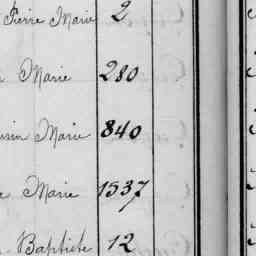 Pierre Marie 2
Marie 280
Marie 840
Marie 1537
Baptiste 12